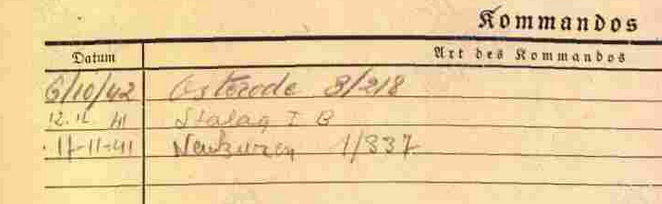 Kommandos
Datum Art des Kommandos
6/10/42 Osterode 3/218
12.11 41 Stalag I B
17-11-41 1/337